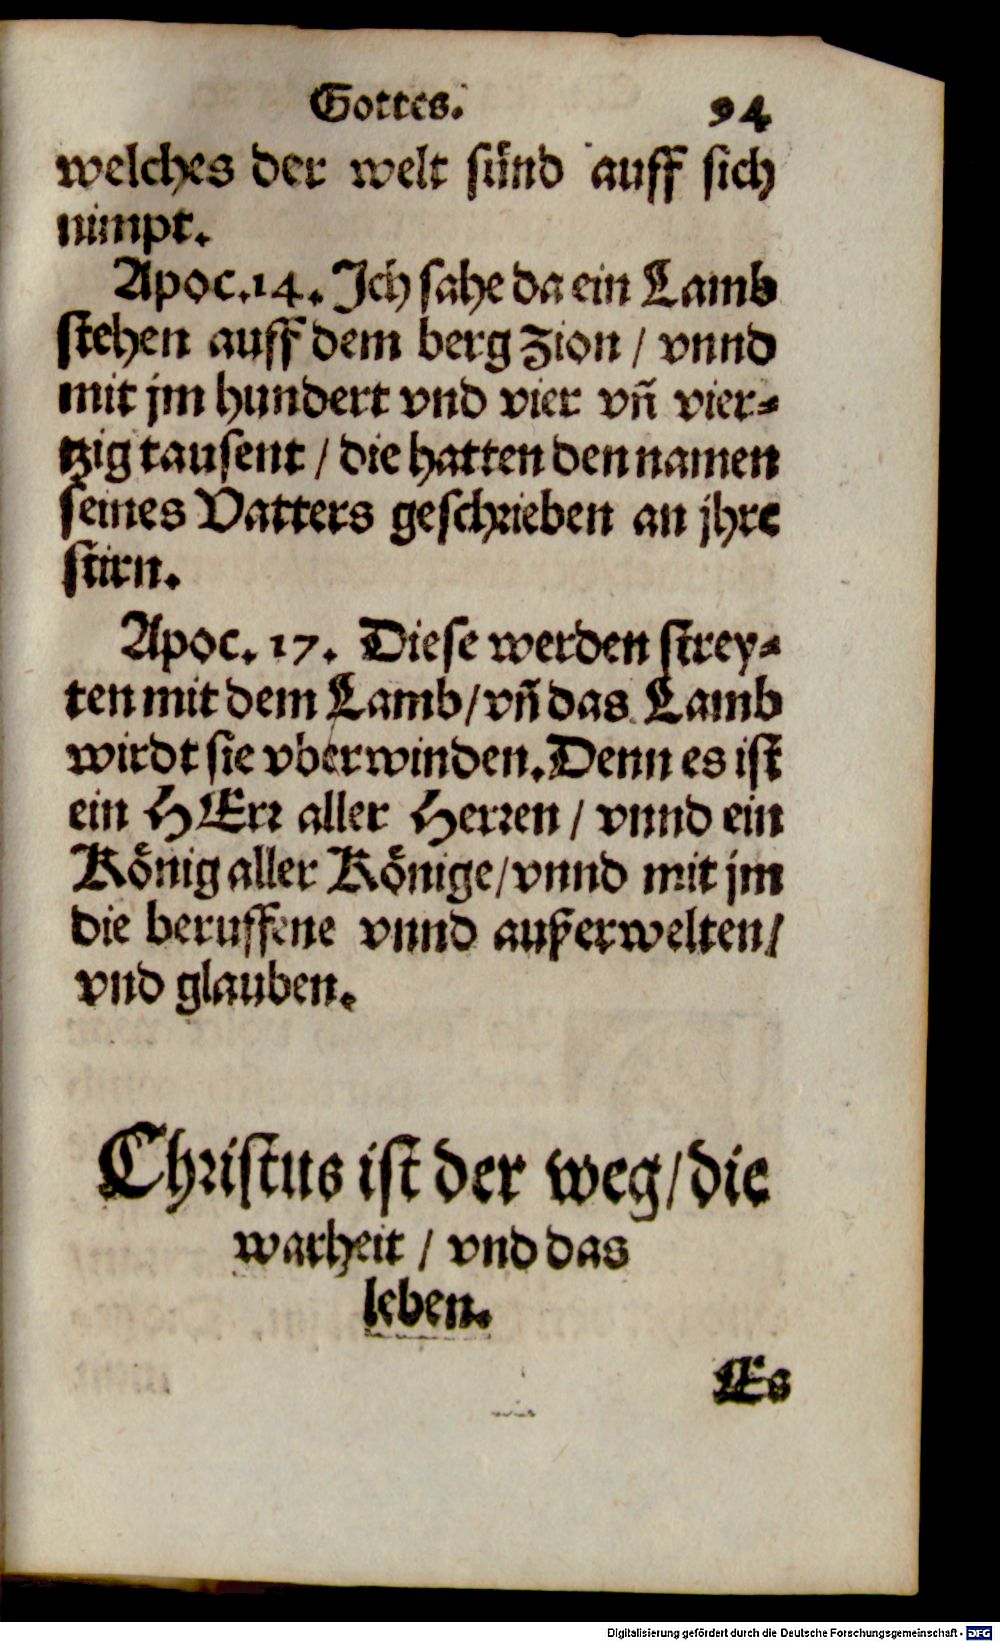 Gottes. 94
welches der welt sünd auff sich
nimpt.
Apoc.14. Ich sahe da ein Lamb
stehen auff dem berg Zion / vnnd
mit jm hundert vnd vier vñ vier-
tzig tausent / die hatten den namen
seines Vatters geschrieben an jhre
stirn.
Apoc. 17. Diese werden strey-
ten mit dem Lamb / vñ das Lamb
wirdt sie vberwinden. Denn es ist
ein HErr aller Herren / vnnd ein
König aller Könige / vnnd mit jm
die beruffene vnnd außerwelten /
vnd glauben.
Christus ist der weg / die
warheit / vnd das
leben.
Es
Digitalisierung gefördert durch die Deutsche Forschungsgemeinschaft - DFG